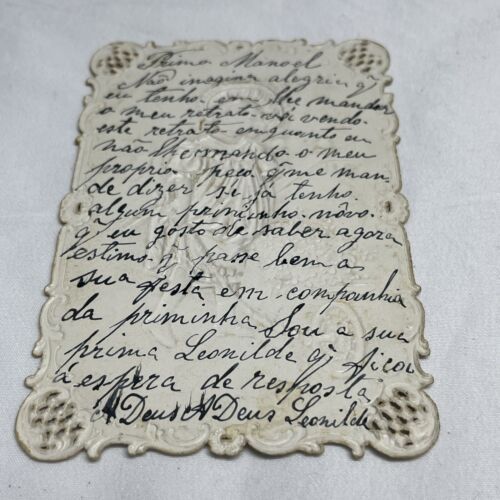 Primo Manoel
Não imagina alegria q
eu tenho em lhe mandar
o meu retrato vái vendo
este retrato emquanto eu
não lhe mando o meu
proprio peco q me man
de dizer si já tenho
algum priminho nôvo
q eu gosto de saber agora
estimo q passe bem a
sua festa em companhia
da priminha Sou a sua
prima Leonilde q ficou
á espera de resposta
ADeus ADeus Leonilde